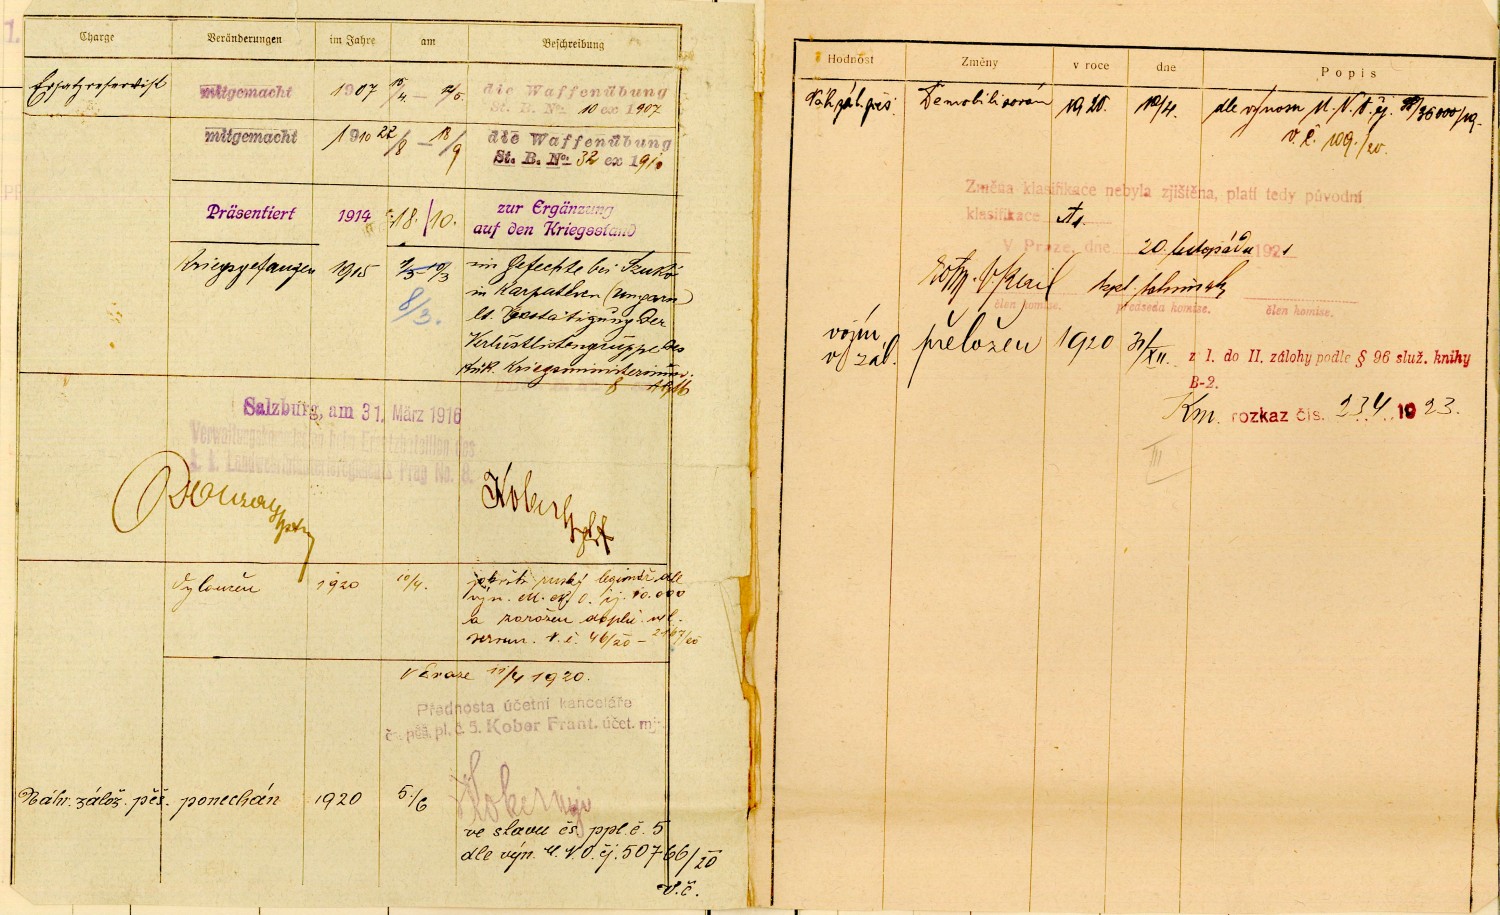 Charge Veränderungen im Jahre am Beschreibung
Ersatzreservist mitgemacht 1907 15/4 – 12/5. die Waffenübung
St. B. No. 10 ex 1907
mitgemacht 1910 22/8 – 18/9 die Waffenübung
St. B. No. 32 ex 1910
Präsentiert 1914 18./10. zur Ergänzung
auf den Kriegsstand
Kriegsgefangen 1915 im Gefechte bei Szukó
8/3. in Karpathen (Ungarn)
lt. Bestätigung der
Verlustlistengruppe des
k.u.k. Kriegsministeriums.
Salzburg, am 31. März 1916
Verwaltungskommission beim Ersatzbataillon des
k. k. Landwehrinfanterieregiments Prag No. 8.
Kober
Vyloučen 1920 10/4. ruský legionář dle
výn. M. N. O. čj. 10.000
a doplň.
V. č. 46/20 – 2167/20
V Praze 11/4 1920.
Přednosta účetní kanceláře
čs. pěš. pl. č. 5. Kober Frant. účet. mjr.
Kober mjr
Náhr. zálož. pěš. ponechán 1920 5./6 ve stavu čs. ppl. č. 5
dle výn. M. N. O. čj. 50766/20
V. č.
Hodnost Změny v roce dne Popis
Náh. zál. pěš. Demobilisován 1920. 10/4. dle výnosu M. N. O. čj. 36000/19.
v. č. 109./20.
Změna klasifikace nebyla zjištěna, platí tedy původní
klasifikace A.
V Praze, dne 20. listopadu 1921
člen komise. předseda komise. člen komise.
vojín v zál. přeložen 1920 31/XII. z I. do II. zálohy podle § 96 služ. knihy
B-2.
Km. rozkaz čís. 234 1923.
III